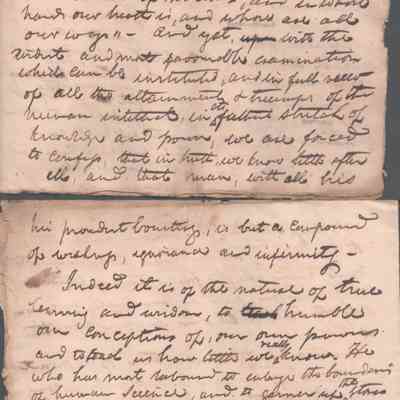 hands our breath is, and whose are all
our ways" - and yet, upon with the
and most favourable examination
which can be instituted, and in full view
of all the attainments & treasures of the
human intellect, in its farthest stretch of
knowledge and power, we are forced
to confess, that in truth, we know little after
all, and that man, with all his
his proudest boasting, is but a compound
of weakness, ignorance and infirmity -
Indeed it is of the nature of true
learning and wisdom, to teach humble
our conceptions of, our own powers
and to teach us how little we really know. He
who has most laboured to enlarge the boundaries
of human science, and to up the